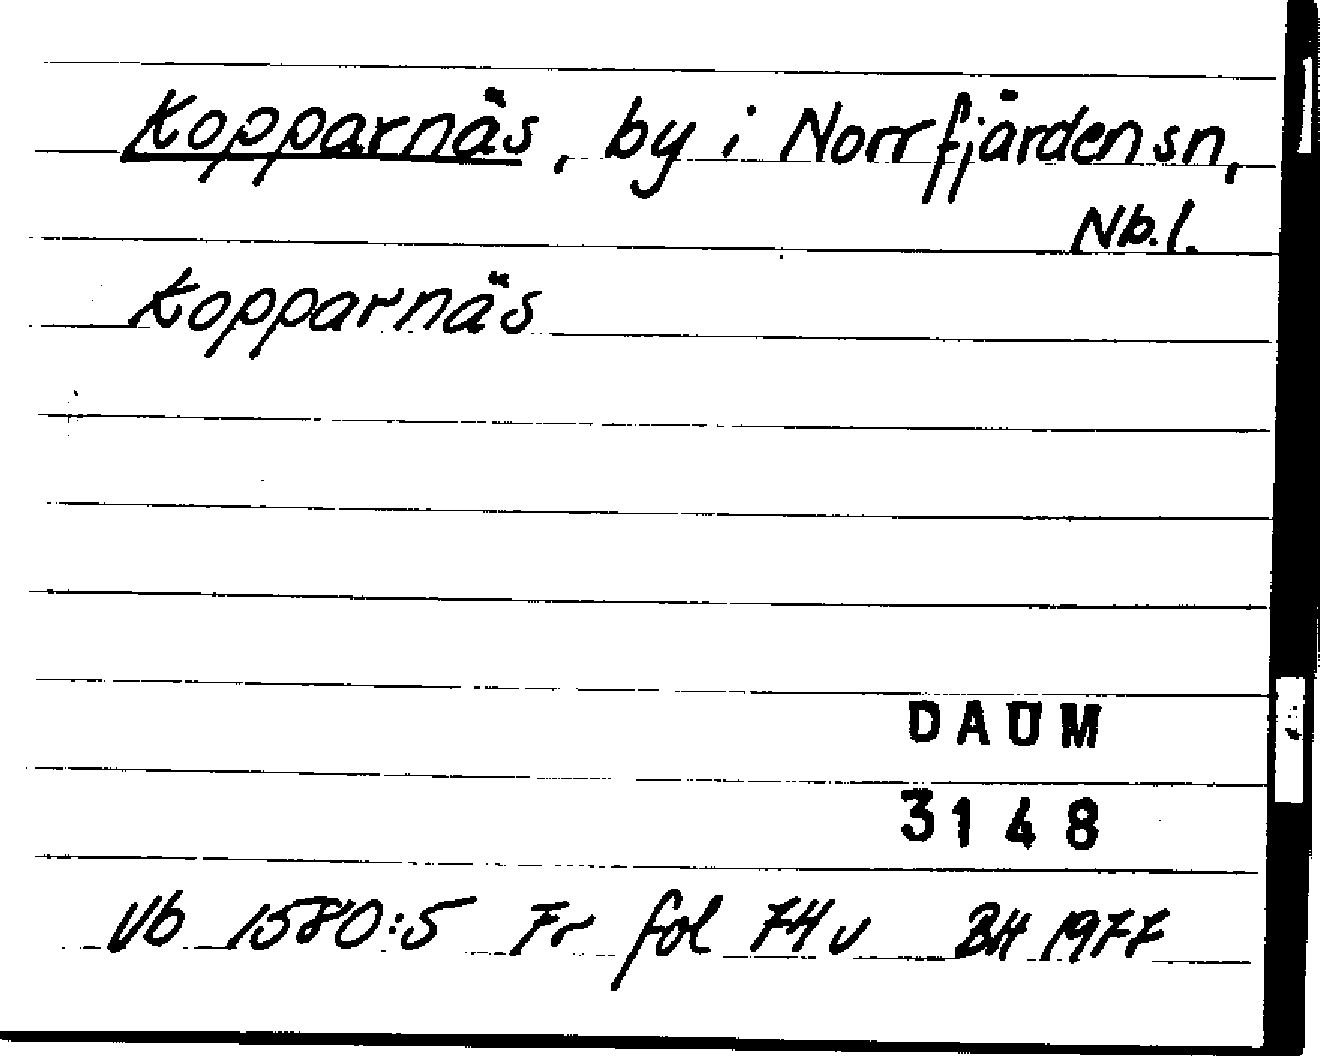 Kopparnäs, by i Norrfjärden sn,
Nb.l.
Kopparnäs
DAUM
3148
Vb 1580:5 Fr fol 74 v BH 1977